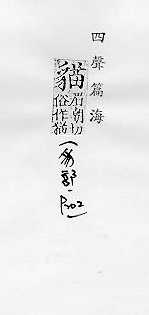 四聲篇海
貓眉朝切
俗作猫
(豸部-P202